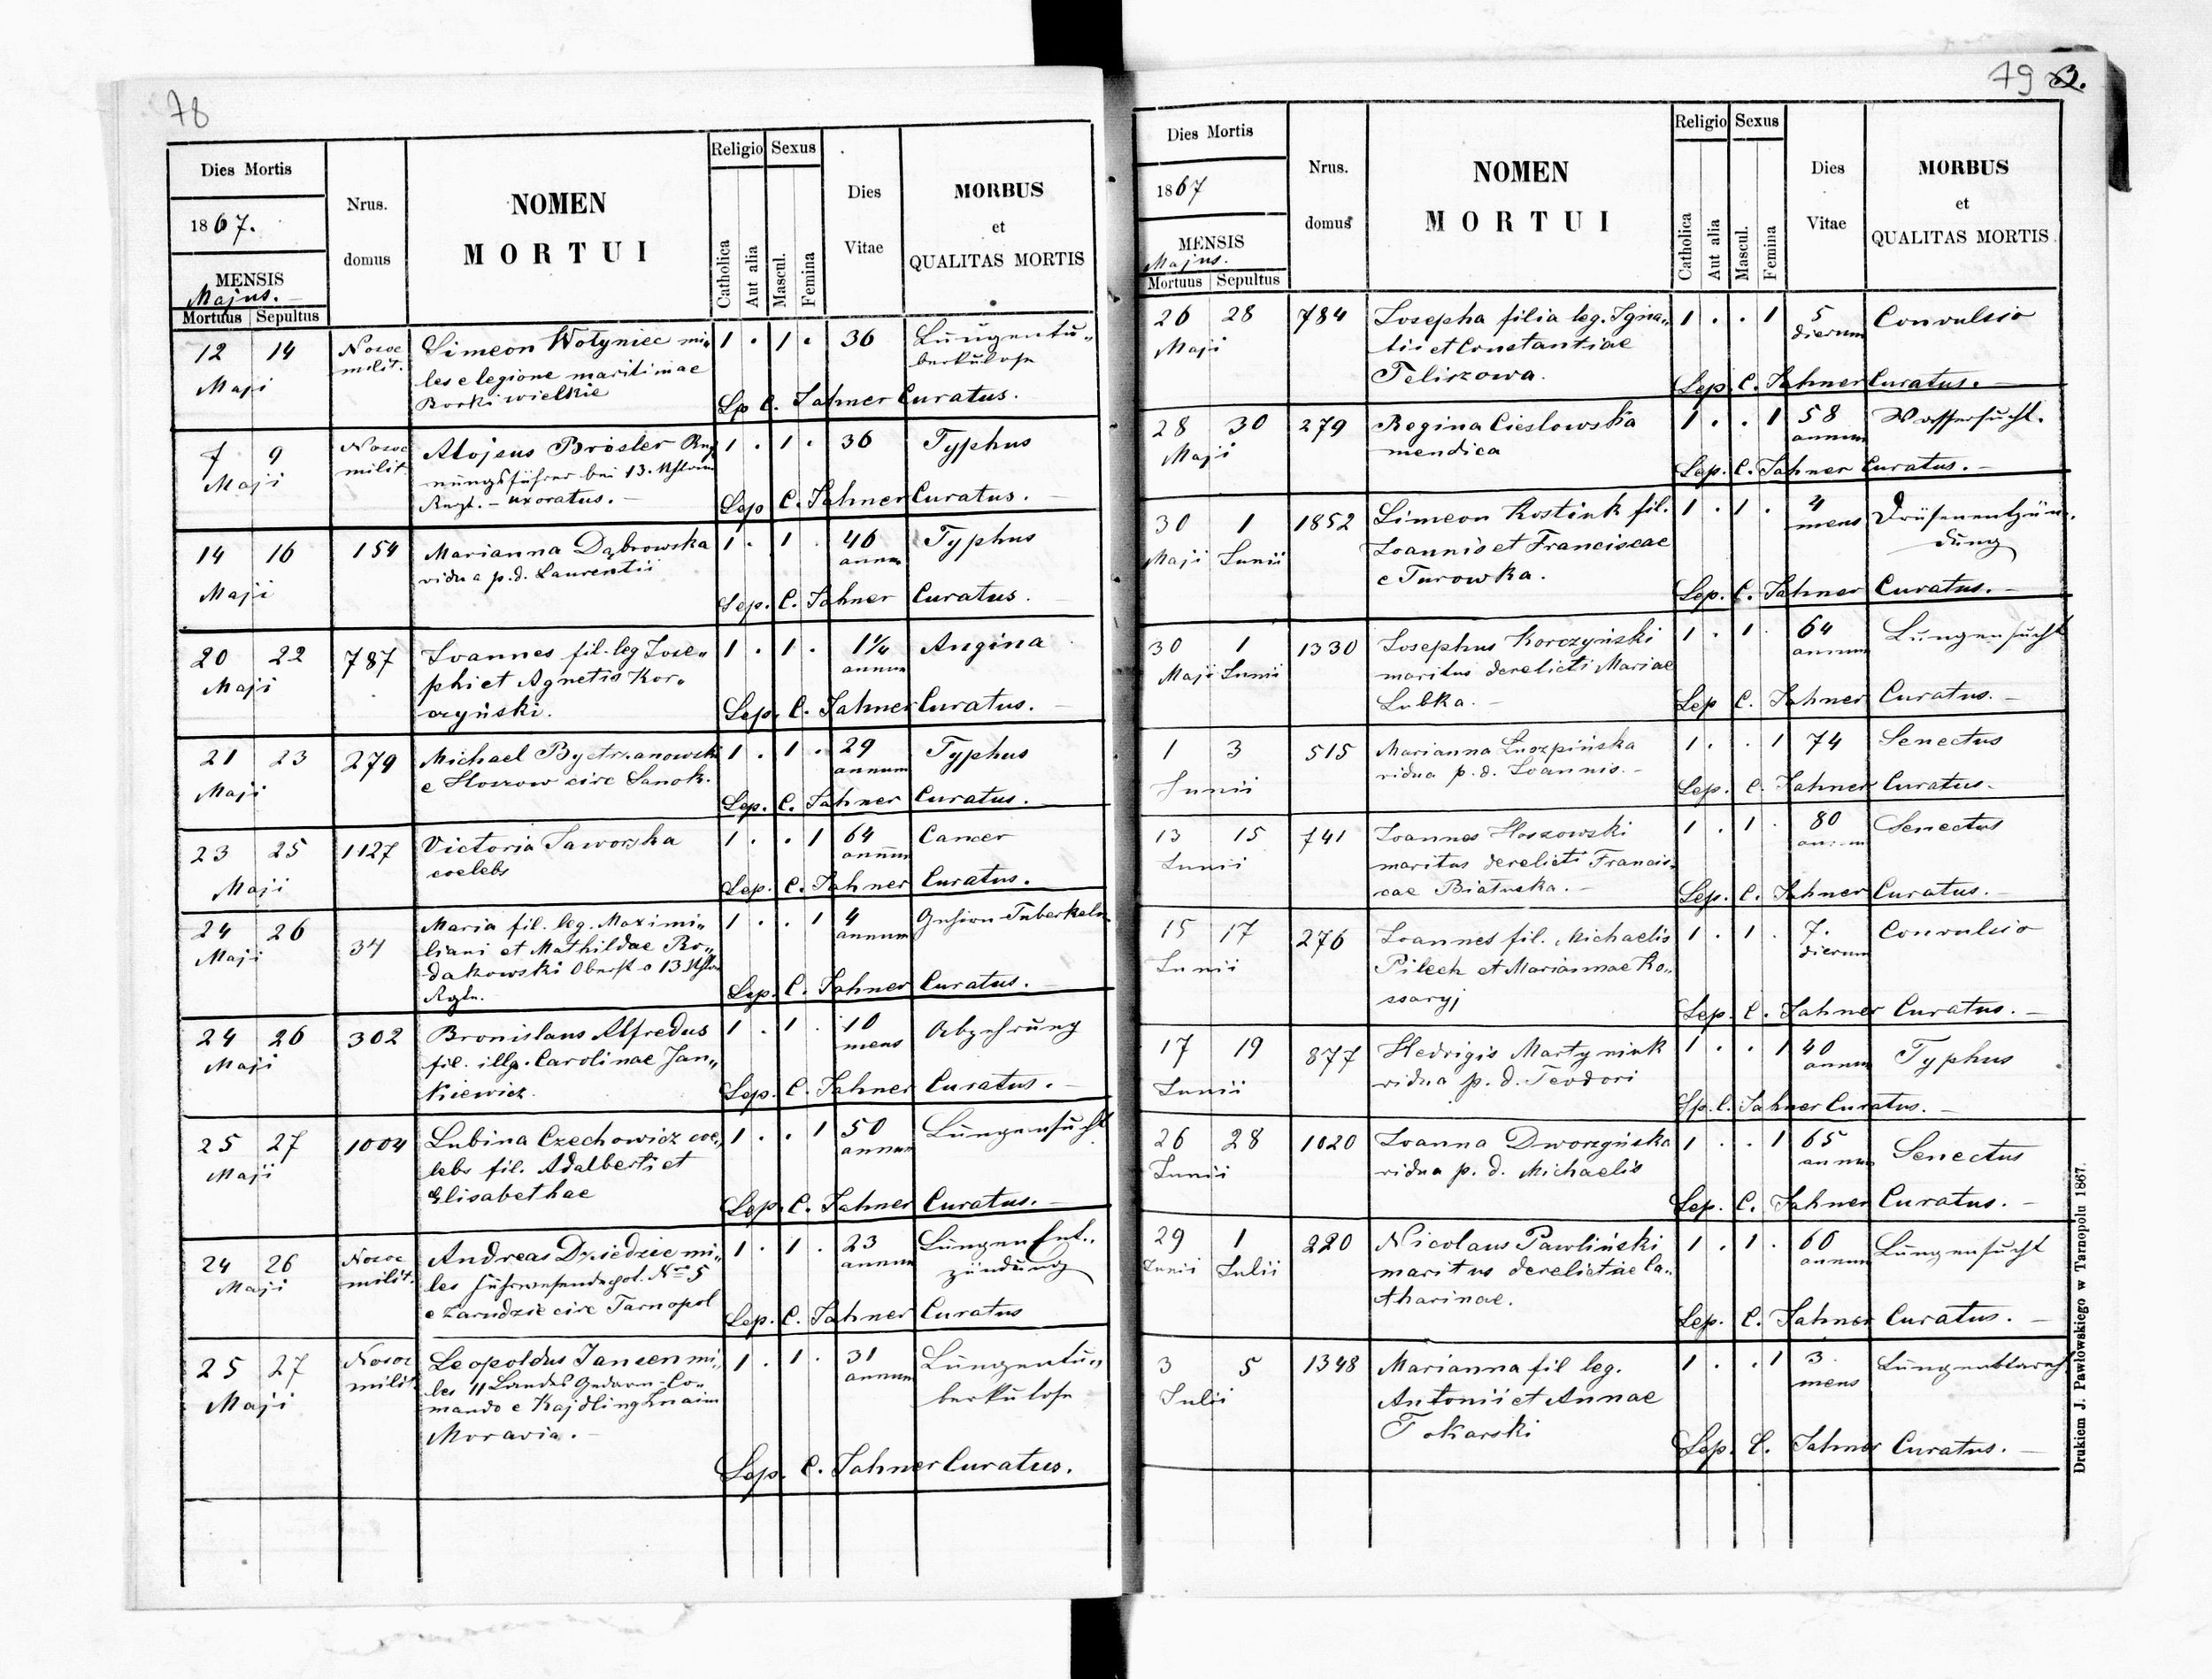 78
Dies Mortis
1867.
MENSIS
Majus.
Mortuus Sepultus
Nrus. domus
NOMEN
MORTUI
Religio Sexus
Catholica Aut alia Mascul. Femina
Dies Vitae
MORBUS
et
QUALITAS MORTIS
12 14 Nosoc Simeon Wołyniec mi„ 1 . 1 . 36 Lungentu„
Maji milit. les e legione maritimae berkulose
Borki wielkie
Sep C. Jahner Curatus.
7 9 Nosoc Alojsus Brösler 1 . 1 . 36 Typhus
Maji milit nungsführer bei 13.
Regt. – uxoratus. –
Sep C. Jahner Curatus. –
14 16 154 Marianna Dąbrowska 1 . 1 . 46 Typhus
Maji vidua p.d. Laurentii annum
Sep. C. Jahner Curatus. –
20 22 787 Joannes fil. leg Jose„ 1 . 1 . 1¼ Angina
Maji phi et Agnetis Kor„ annum
czyński.
Sep. C. Jahner Curatus. –
21 23 279 Michael Bystrzanowski 1 . 1 . 29 Typhus
Maji e Hoszow circ Sanok. annum
Sep. C. Jahner Curatus. –
23 25 1127 Victoria Jaworska 1 . . 1 64 Cancer
Maji coelebs annum
Sep. C. Jahner Curatus.
24 26 34 Maria fil. leg. Maximi„ 1 . . 1 4 Gehirn Tuberkeln
Maji liani et Mathildae Ro„ annum
dakowski Oberst 13
Rgtn.
Sep. C. Jahner Curatus. –
24 26 302 Bronislaus Alfredus 1 . 1 . 10 Abzehrung
Maji fil. illg. Carolinae Jan„ mens
kiewicz.
Sep. C. Jahner Curatus. –
25 27 1004 Lubina Czechowicz coe„ 1 . . 1 50 Lungensucht
Maji lebs fil. Adalberti et annum
Elisabethae
Sep. C. Jahner Curatus. –
24 26 Nosoc Andreas Dziedzic mi„ 1 . 1 . 23 Lungen Ent„
Maji milit. les N° 5 annum zündung
e Zarudzie circ Tarnopol
Sep. C. Jahner Curatus
25 27 Nosoc Leopoldus Jansen mi„ 1 . 1 . 31 Lungentu„
Maji milit les 11 Landes Co„ annum berkulose
mando e Kajdling Znaim
Moravia. –
Sep. C. Jahner Curatus.
79
Dies Mortis
1867
MENSIS
Majus.
Mortuus Sepultus
Nrus. domus
NOMEN
MORTUI
Religio Sexus
Catholica Aut alia Mascul. Femina
Dies Vitae
MORBUS
et
QUALITAS MORTIS
26 28 784 Josepha filia leg. Igna„ 1 . . 1 5 Convulsio
Maji tii et Constantiae dierum
Teliszowa.
Sep. C. Jahner Curatus. –
28 30 279 Regina Cieslowska 1 . . 1 58 Wassersucht.
Maji mendica annum
Sep. C. Jahner Curatus. –
30 1 1852 Simeon Kostiuk fil. 1 . 1 . 4 Drüsenentzün„
Maji Junii Joannis et Franciscae mens dung
e Turowka.
Sep. C. Jahner Curatus. –
30 1 1330 Josephus Korczyński 1 . 1 . 64 Lungensucht
Maji Junii maritus derelicti Mariae annum
Lubka. –
Sep C. Jahner Curatus. –
1 3 515 Marianna Luszpińska 1 . . 1 74 Senectus
Junii vidua p. d. Joannis. –
Sep. C. Jahner Curatus. –
13 15 741 Joannes Hoszowski 1 . 1 . 80 Senectus
Junii maritus derelicti Francis„ annum
cae Białuska. –
Sep. C. Jahner Curatus. –
15 17 276 Joannes fil. Michaelis 1 . 1 . 7. Convulsio
Junii Pilech et Mariannae Ko„ dierum
ssaryj
Sep. C. Jahner Curatus. –
17 19 877 Hedvigis Martyniuk 1 . . 1 40 Typhus
Junii vidua p. d. Teodori annum
Sp. C. Jahner Curatus. –
26 28 1020 Joanna Dworzyńska 1 . . 1 65 Senectus
Junii vidua p. d. Michaelis annum
Sep. C. Jahner Curatus. –
29 1 220 Nicolaus Pawliński 1 . 1 . 60 Lungensucht
Junii Julii maritus derelictae Ca„ annum
tharinae.
Sep. C. Jahner Curatus. –
3 5 1348 Marianna fil leg. 1 . . 1 3
Julii Antonii et Annae mens
Tokarski
Sep. C. Jahner Curatus. –
Drukiem J. Pawłowskiego w Tarnopolu 1867.